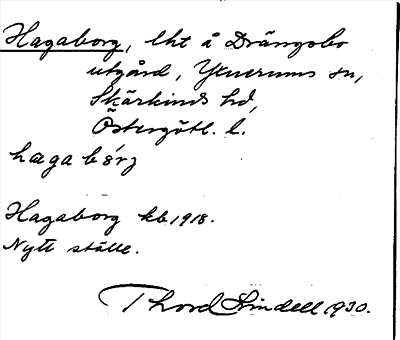 Hagaborg, lht å Drängsbo
utgård, Yxnerums sn,
Skärkinds hd,
Östergötl. l.
hagabórj
Hagaborg kb 1918.
Nytt ställe.
Thord Lindell 1930.